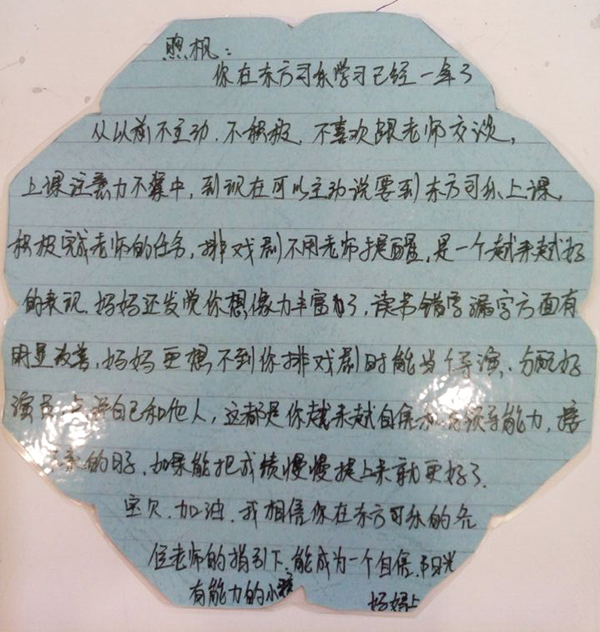 煦枫：
你在东方司称学习已经一年了
从以前不主动、不积极，不喜欢跟老师交谈，
上课注意力不集中，到现在可以主动说要到东方司称上课，
积极完成老师的任务，排戏剧不用老师提醒，是一个越来越好
的表现，妈妈还发觉你想像力丰富了，读书错字漏字方面有
明显改善，妈妈更想不到你排戏剧时能当个导演，分配好
演员，点评自己和他人，这都是你越来越自信和有领导能力，接
下来的日子，如果能把成绩慢慢提上来就更好了。
宝贝，加油，我相信你在东方司称的各
位老师的指引下，能成为一个自信、阳光
有能力的小孩
妈妈上